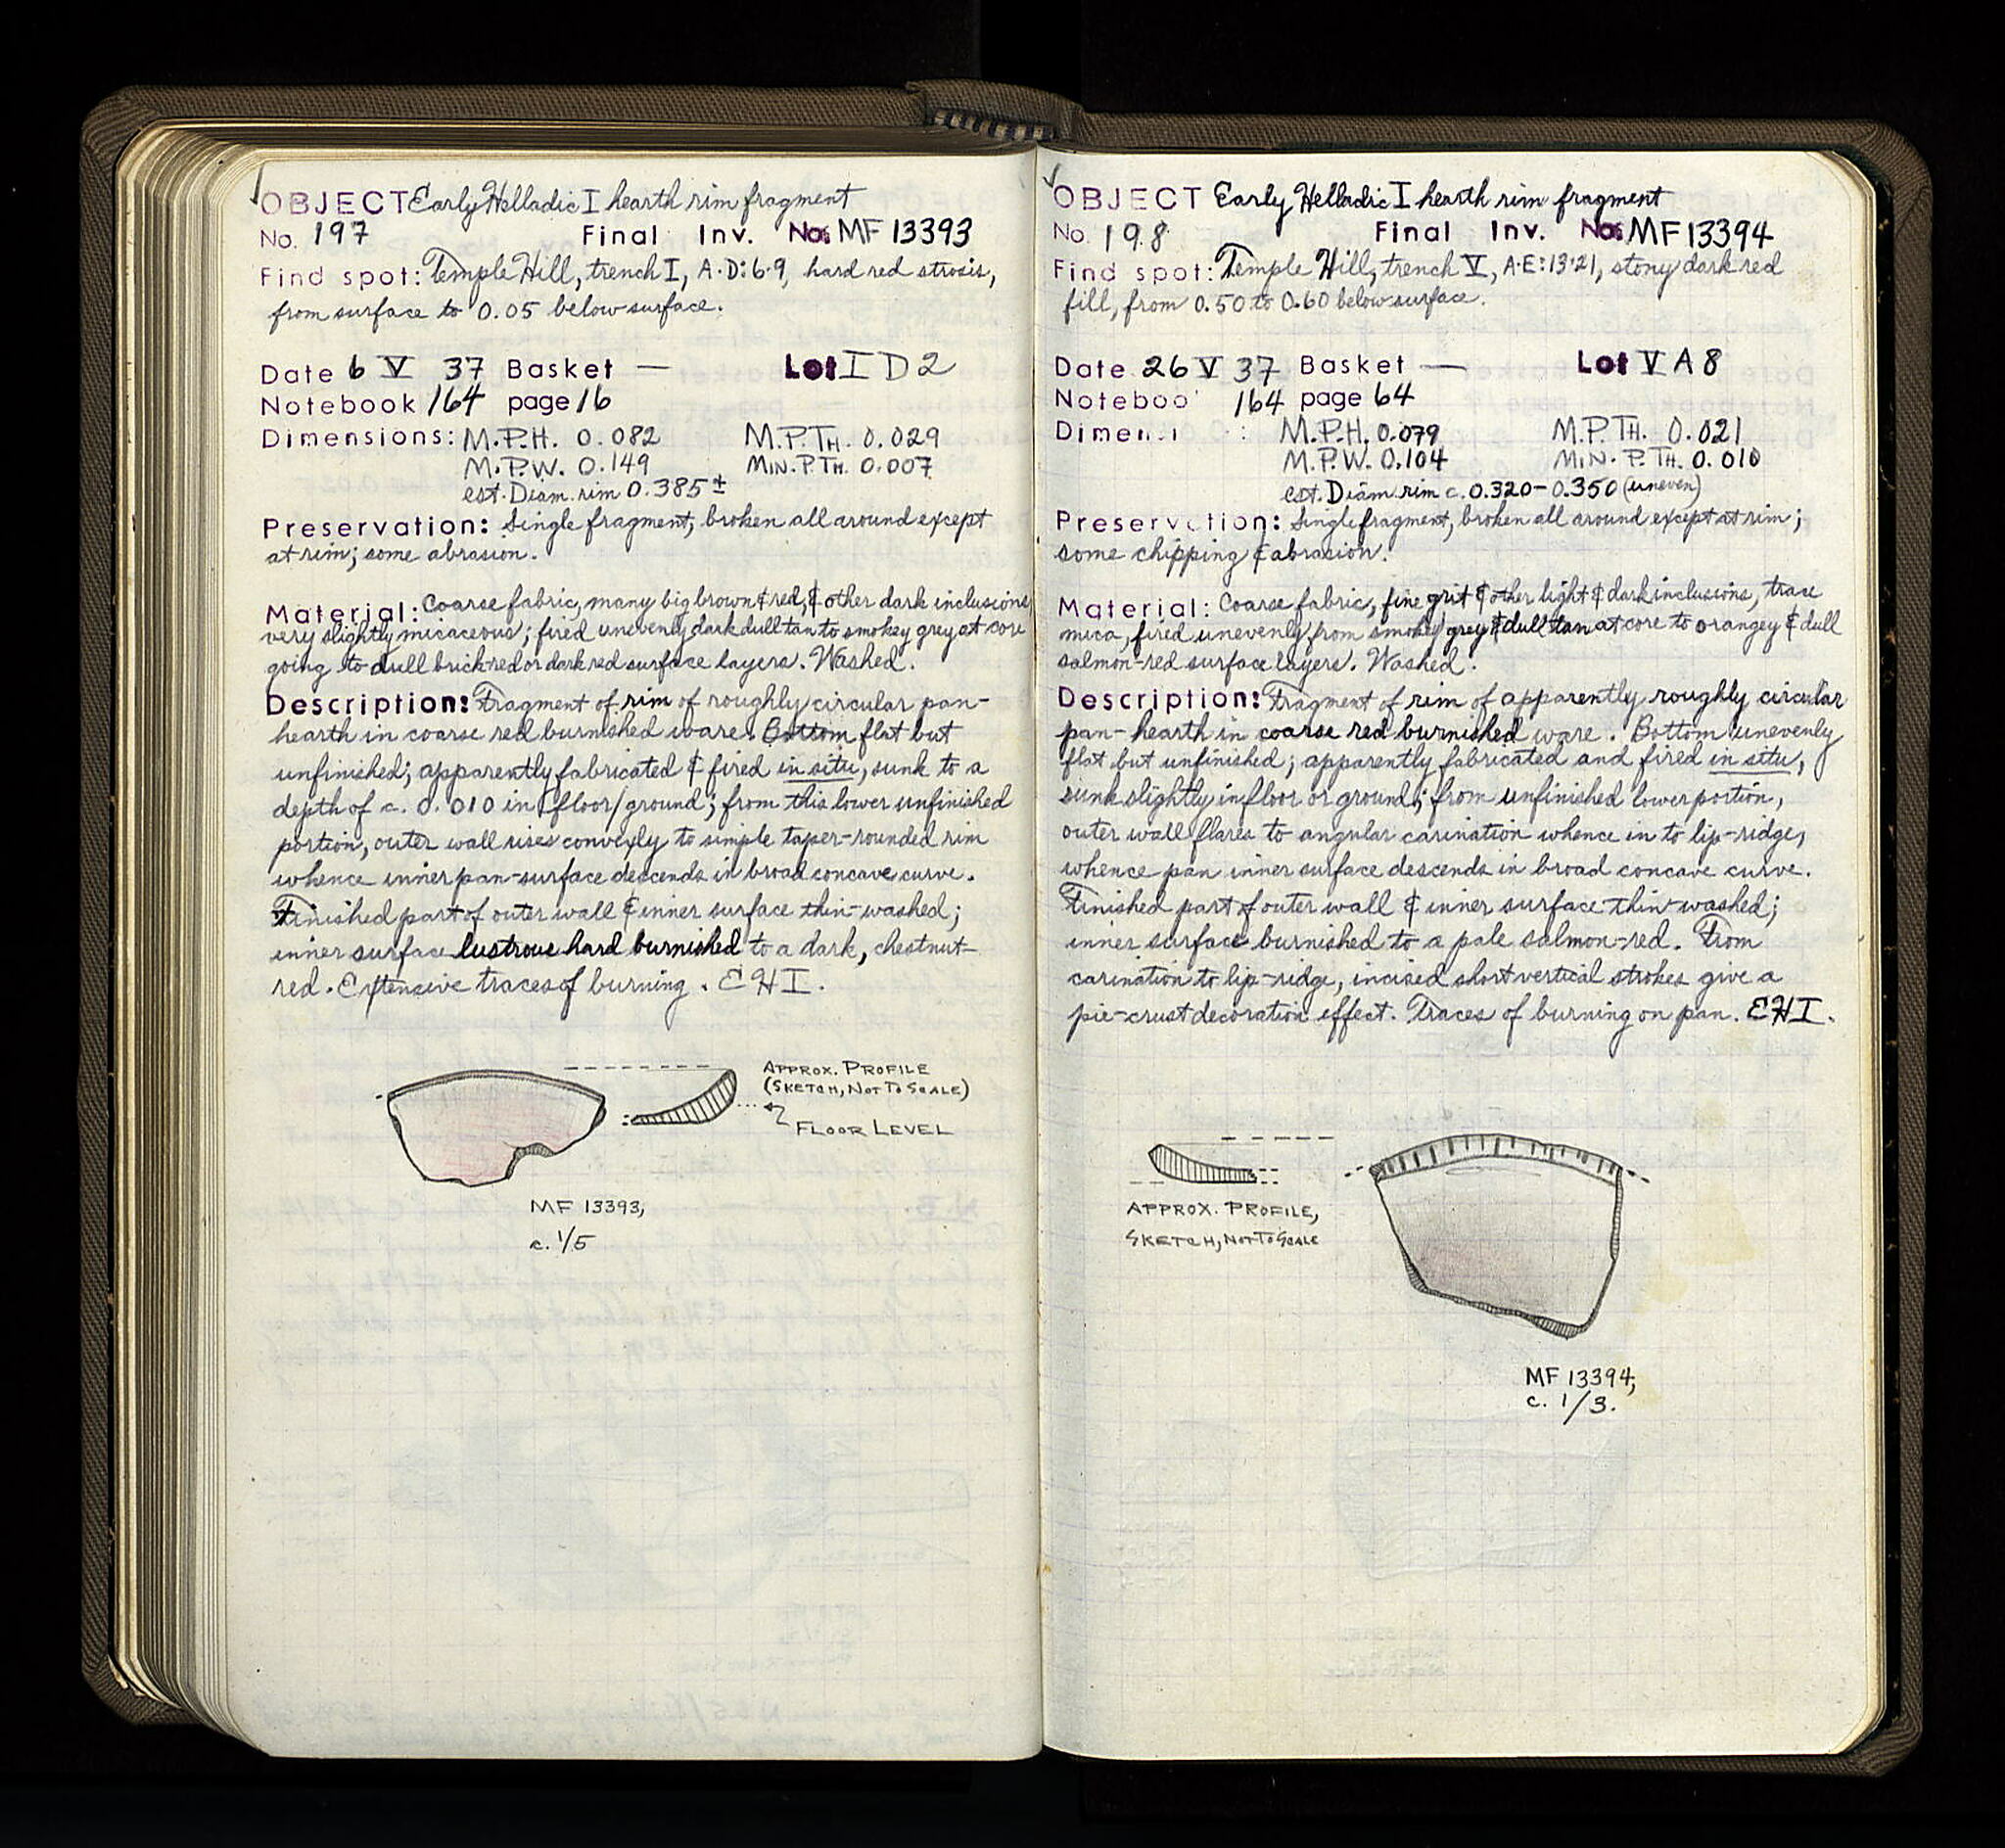 OBJECT Early Helladic I hearth rim fragment
No. 197 Final Inv. No: MF 13393
Find spot: Temple Hill, trench I, A-D:6-9, hard red strosis,
from surface to 0.05 below surface.
Date 6 V 37 Basket — Lot I D 2
Notebook 164 page 16
Dimensions: M.P.H. 0.082 M.P.TH. 0.029
M.P.W. 0.149 MIN. P. TH. 0.007
est. Diam. rim 0.385±
Preservation: Single fragment; broken all around except
at rim; some abrasion.
Material: Coarse fabric, many big brown & red, & other dark inclusions
very slightly micaceous; fired unevenly dark dull tan to smokey grey at core
going to dull brick-red or dark red surface layers. Washed.
Description: Fragment of rim of roughly circular pan-
hearth in coarse red burnished ware. Bottom flat but
unfinished; apparently fabricated & fired in situ, sunk to a
depth of c. 0.010 in floor/ground; from this lower unfinished
portion, outer wall rises convexly to simple taper-rounded rim
whence inner pan-surface descends in broad concave curve.
Finished part of outer wall & inner surface thin-washed;
inner surface lustrous hard burnished to a dark, chestnut-
red. Extensive traces of burning. EH I.
APPROX. PROFILE
(SKETCH, NOT TO SCALE)
FLOOR LEVEL
MF 13393,
c. 1/5
OBJECT Early Helladic I hearth rim fragment
No. 198 Final Inv. No: MF 13394
Find spot: Temple Hill, trench V, A-E:13-21, stony dark red
fill, from 0.50 to 0.60 below surface.
Date 26 V 37 Basket — Lot V A 8
Noteboo 164 page 64
Dimen : M.P.H. 0.079 M.P.TH. 0.021
M.P.W. 0.104 MIN. P. TH. 0.010
est. Diam. rim c. 0.320-0.350 (uneven)
Preservation: Single fragment, broken all around except at rim;
some chipping & abrasion.
Material: Coarse fabric, fine grit & other light & dark inclusions, trace
mica, fired unevenly from smokey grey & dull tan at core to orangey & dull
salmon-red surface layers. Washed.
Description: Fragment of rim of apparently roughly circular
pan-hearth in coarse red burnished ware. Bottom unevenly
flat but unfinished; apparently fabricated and fired in situ,
sunk slightly in floor or ground; from unfinished lower portion,
outer wall flares to angular carination whence in to lip-ridge,
whence pan inner surface descends in broad concave curve.
Finished part of outer wall & inner surface thin-washed;
inner surface burnished to a pale salmon-red. From
carination to lip-ridge, incised short vertical strokes give a
pie-crust decoration effect. Traces of burning on pan. EH I.
APPROX. PROFILE,
SKETCH, NOT TO SCALE
MF 13394,
c. 1/3.